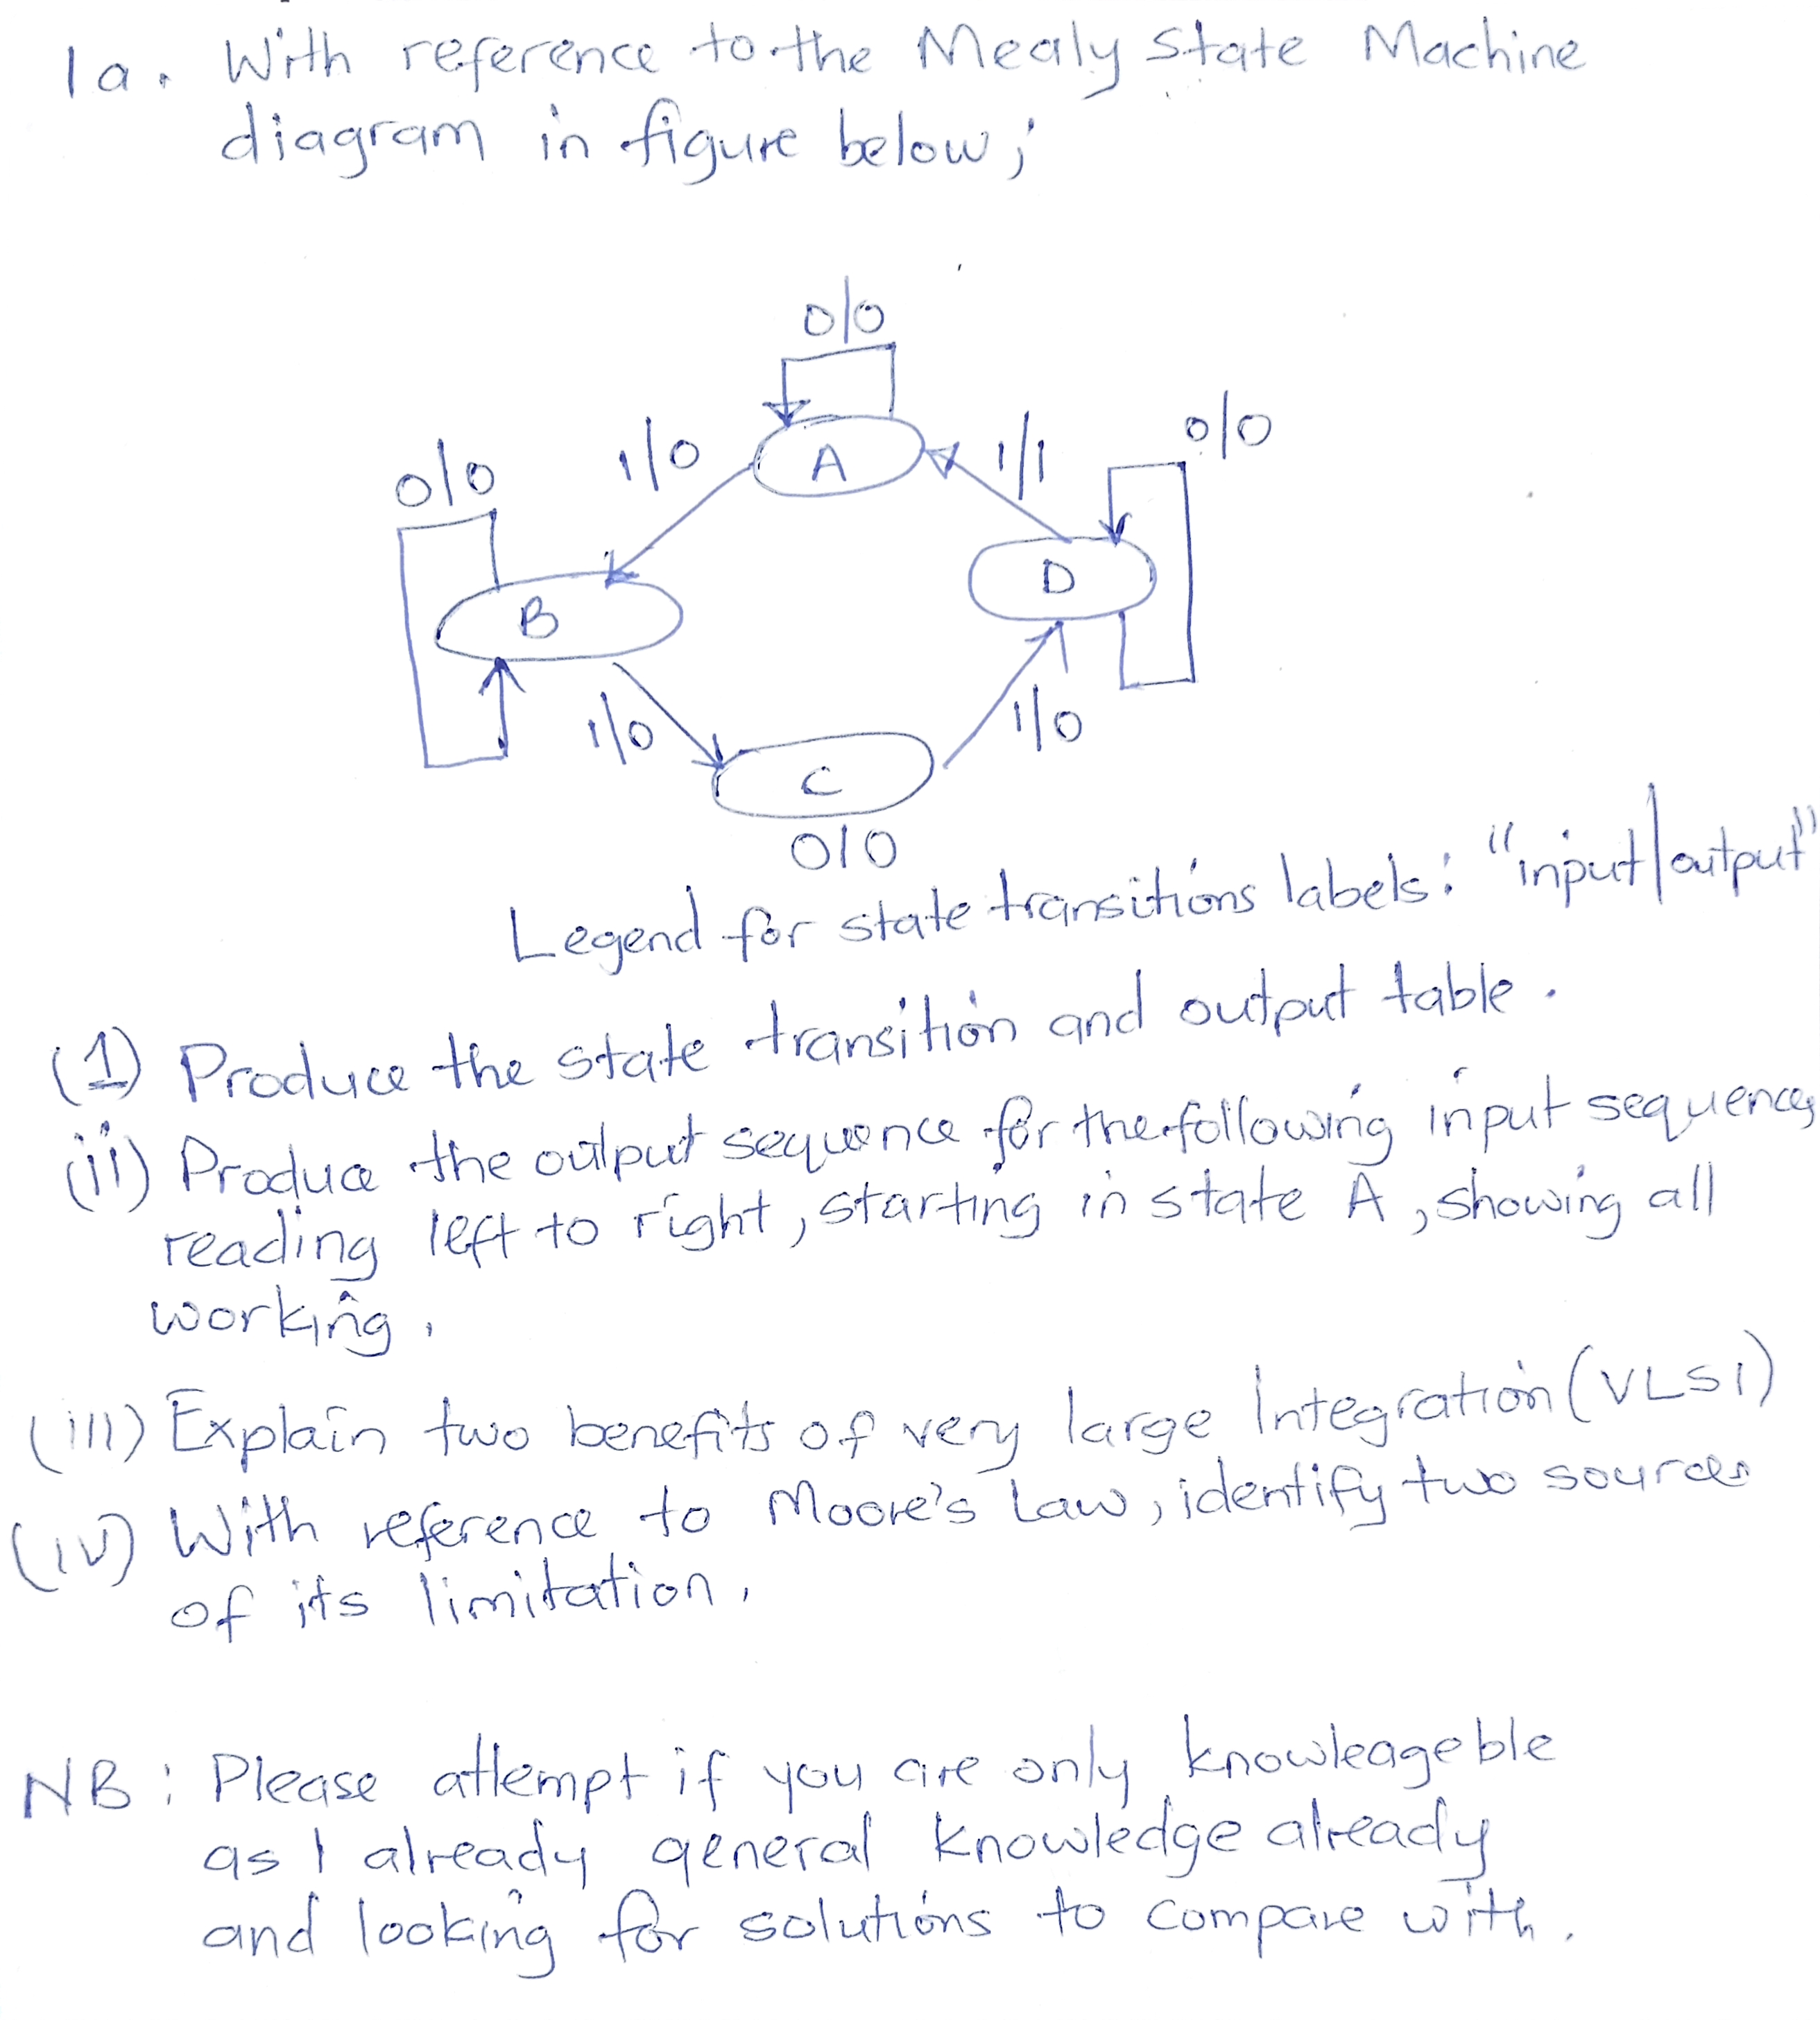 1a. With reference to the Mealy State Machine
diagram in figure below;
0/0
0/0
1/0
A
1/1
0/0
B
D
1/0
C
1/0
0/0
Legend for state transitions labels: "input/output"
(1) Produce the state transition and output table.
(ii) Produce the output sequence for the following input sequence,
reading left to right, starting in state A, showing all
working.
(iii) Explain two benefits of very large Integration (VLSI)
(iv) With reference to Moore's Law, identify two sources
of its limitation.
NB: Please attempt if you are only knowleageble
as I already general knowledge already
and looking for solutions to compare with.